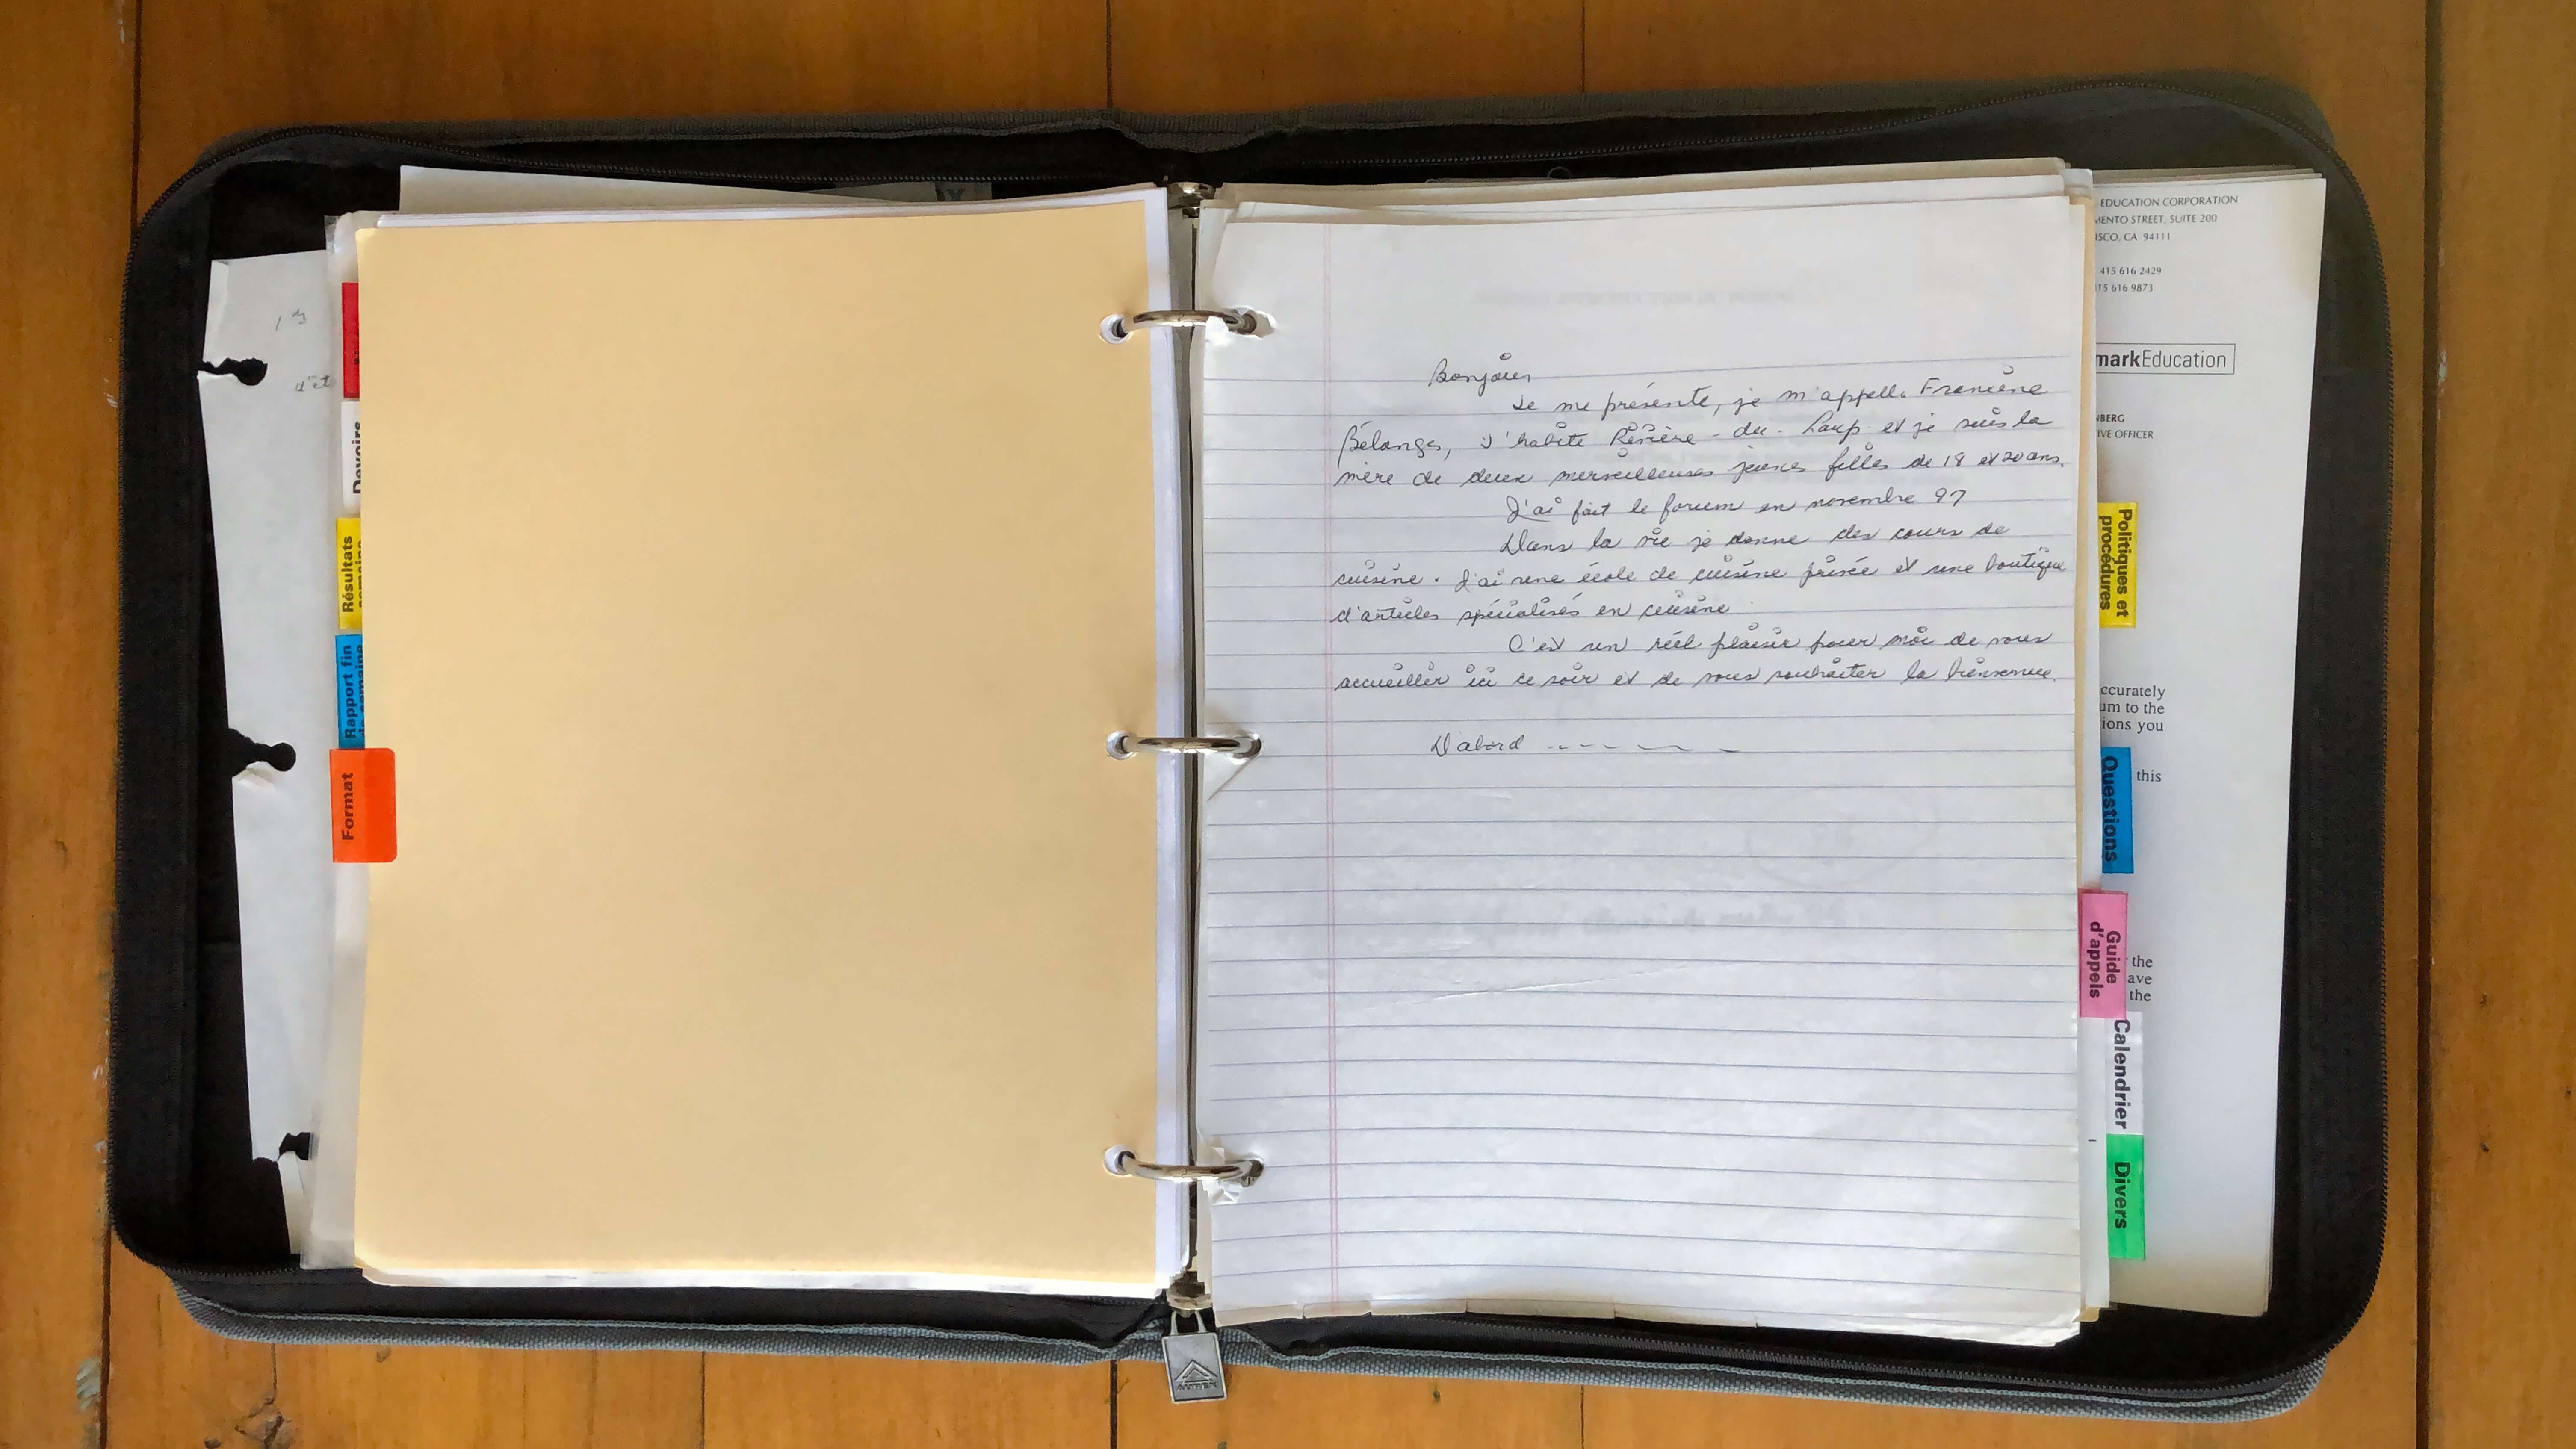 Devoirs
Résultats
semaine
Rapport fin
de semaine
Format
Bonjour
Je me présente, je m'appelle Francine
Bélanger, J'habite Rivière-du-Loup et je suis la
mère de deux merveilleuses jeunes filles de 18 et 20 ans.
J'ai fait le forum en novembre 97
Dans la vie je donne des cours de
cuisine. J'ai une école de cuisine privée et une boutique
d'articles spécialisés en cuisine
C'est un réel plaisir pour moi de vous
accueillir ici ce soir et de vous souhaiter la bienvenue.
D'abord
EDUCATION CORPORATION
MENTO STREET, SUITE 200
ISCO, CA 94111
415 616 2429
15 616 9873
markEducation
NBERG
IVE OFFICER
Politiques et
procédures
ccurately
um to the
ions you
this
Questions
Guide
d'appels
the
ave
the
Calendrier
Divers